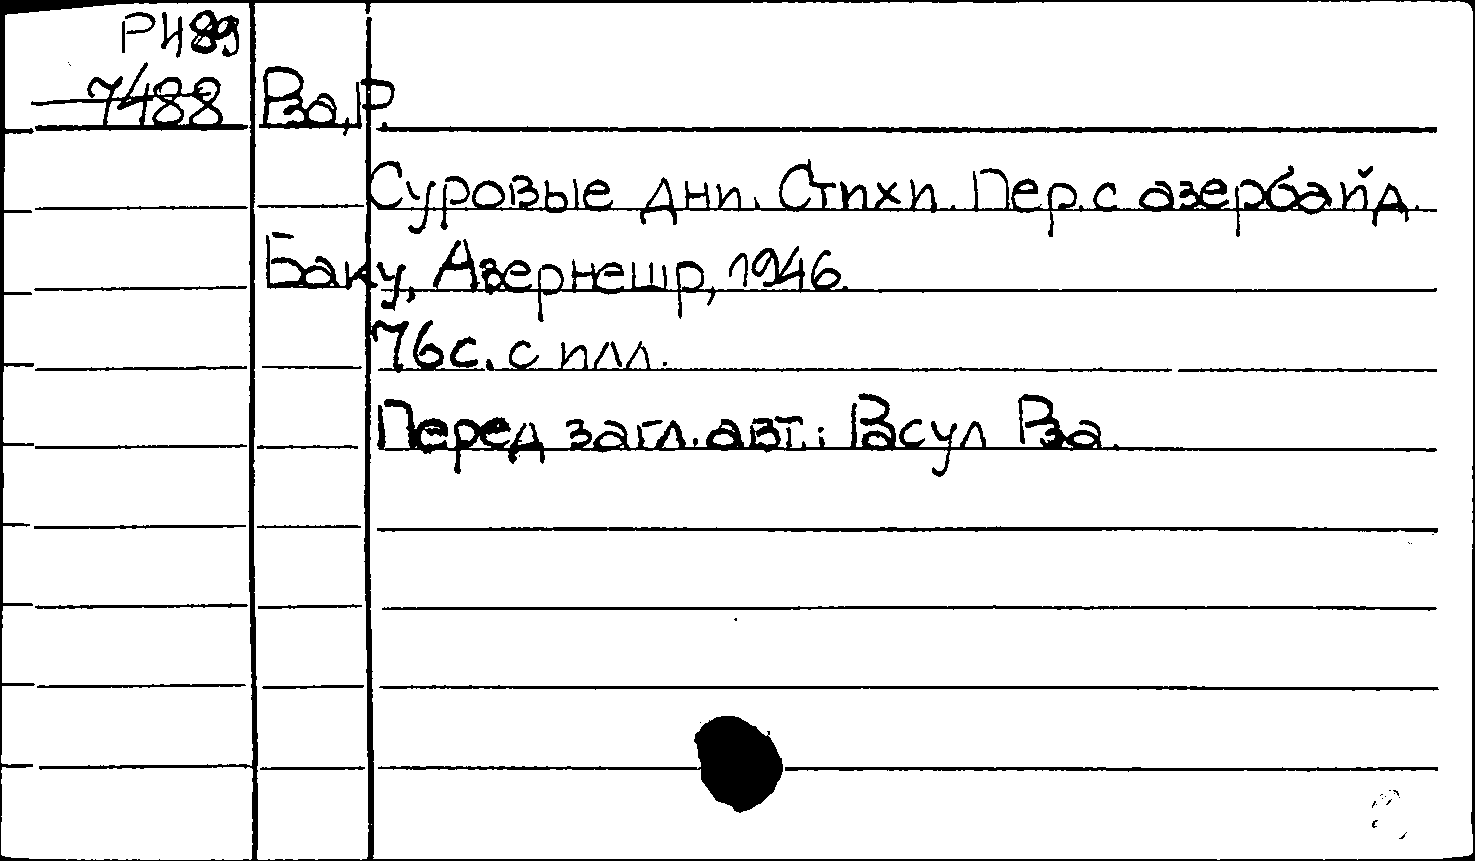 РИ89
7488 Рза, Р.
Суровые дни. Стихи. Пер. с азербайд.
Баку, Азернешр, 1946.
76с. с илл.
Перед загл. авт.: Расул Рза.